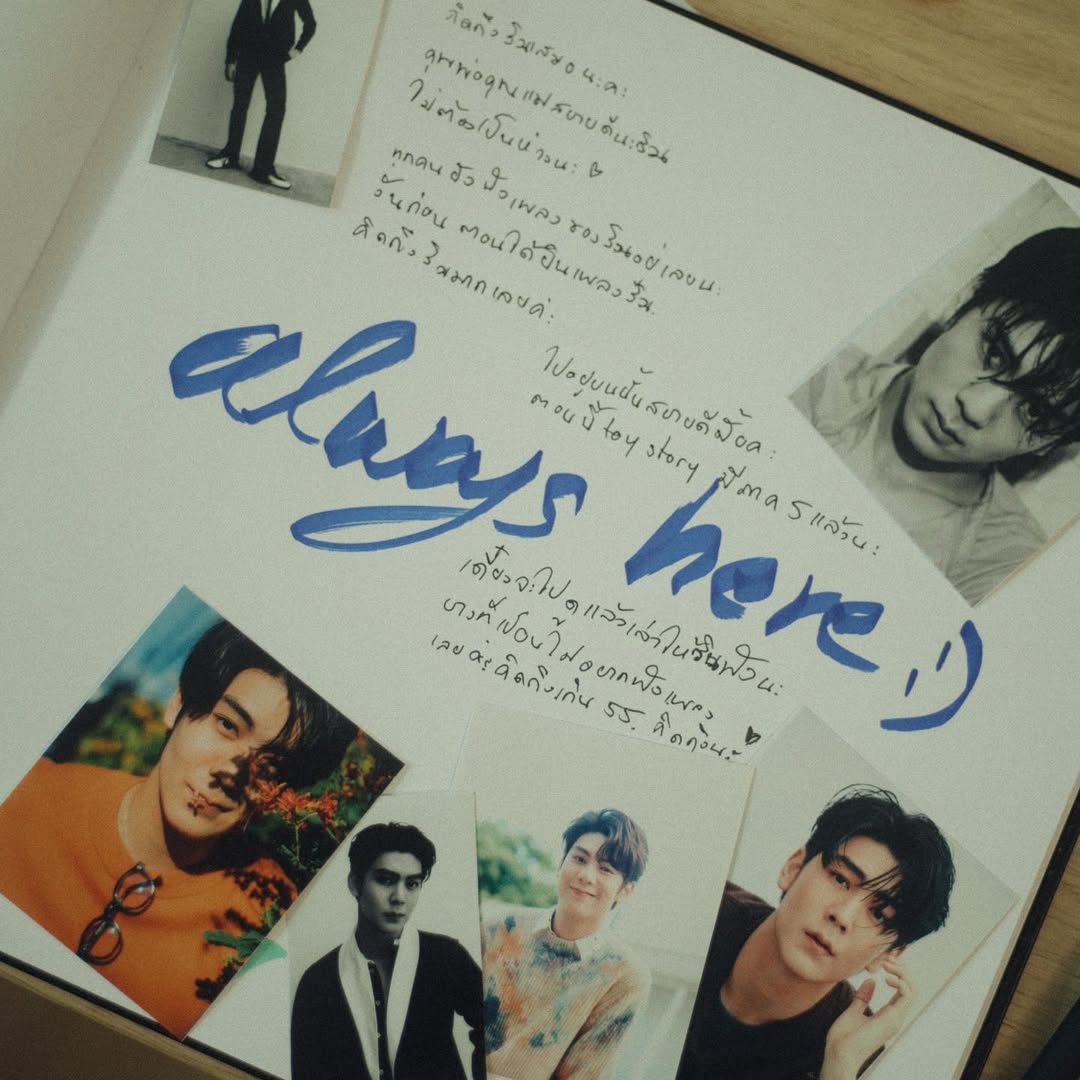 คิดถึงริวเสมอนะคะ
คุณพ่อคุณแม่สบายดีนะริว
ไม่ต้องเป็นห่วงนะ ♡
ทุกคนยังฟังเพลงของริวอยู่เลยนะ
วันก่อน ตอนได้ยินเพลงริว
คิดถึงริวมากเลยค่ะ
always here :)
ไปอยู่บนนั้นสบายดีมั้ยคะ
ตอนนี้ toy story มีภาค 5 แล้วนะ
เดี๋ยวจะไปดูแล้วเล่าให้ริวฟังนะ
บางทีเปอนไม่อยากฟังเพลง
เลยค่ะ คิดถึงเกิน 55. คิดถึงนะ ♥